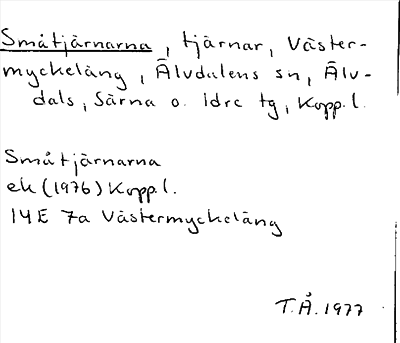 Småtjärnarna, tjärnar, Väster-
myckeläng, Älvdalens sn, Älv-
dals, Särna o. Idre tg, Kopp. l.
Småtjärnarna
ek (1976) Kopp. l.
14E 7a Västermyckeläng
T.Å. 1977